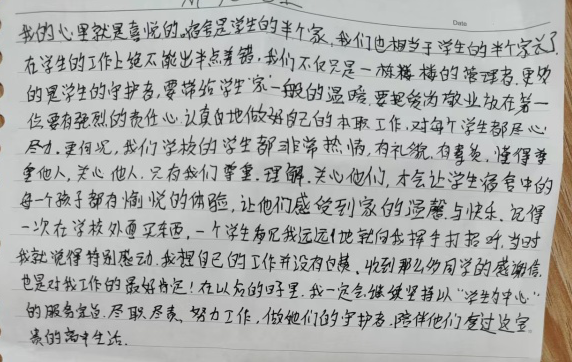 Date
我的心里就是喜悦的。宿舍是学生的半个家,我们也相当于学生的半个家长了,
在学生的工作上绝不能出半点差错,我们不仅只是一栋楼的管理者,更多
的是学生的守护者,要带给学生"家"一般的温暖。要把爱岗敬业放在第一
位,要有强烈的责任心,认真自地做好自己的本职工作,对每个学生都尽心
尽力。更何况,我们学校的学生都非常热情,有礼貌,有素养,懂得尊
重他人,关心他人。只有我们尊重、理解、关心他们,才会让学生宿舍中的
每一个孩子都有愉悦的体验,让他们感受到家的温馨与快乐。记得
一次在学校外面买东西,一个学生看见我远远地就向我挥手打招呼,当时
我就觉得特别感动。我想自己的工作并没有白费。收到那么多同学的感谢信
也是对我工作的最好肯定!在以后的日子里,我一定会继续坚持以"学生为中心"
的服务宗旨,尽职尽责,努力工作,做她们的守护者,陪伴他们度过这宝
贵的高中生活.